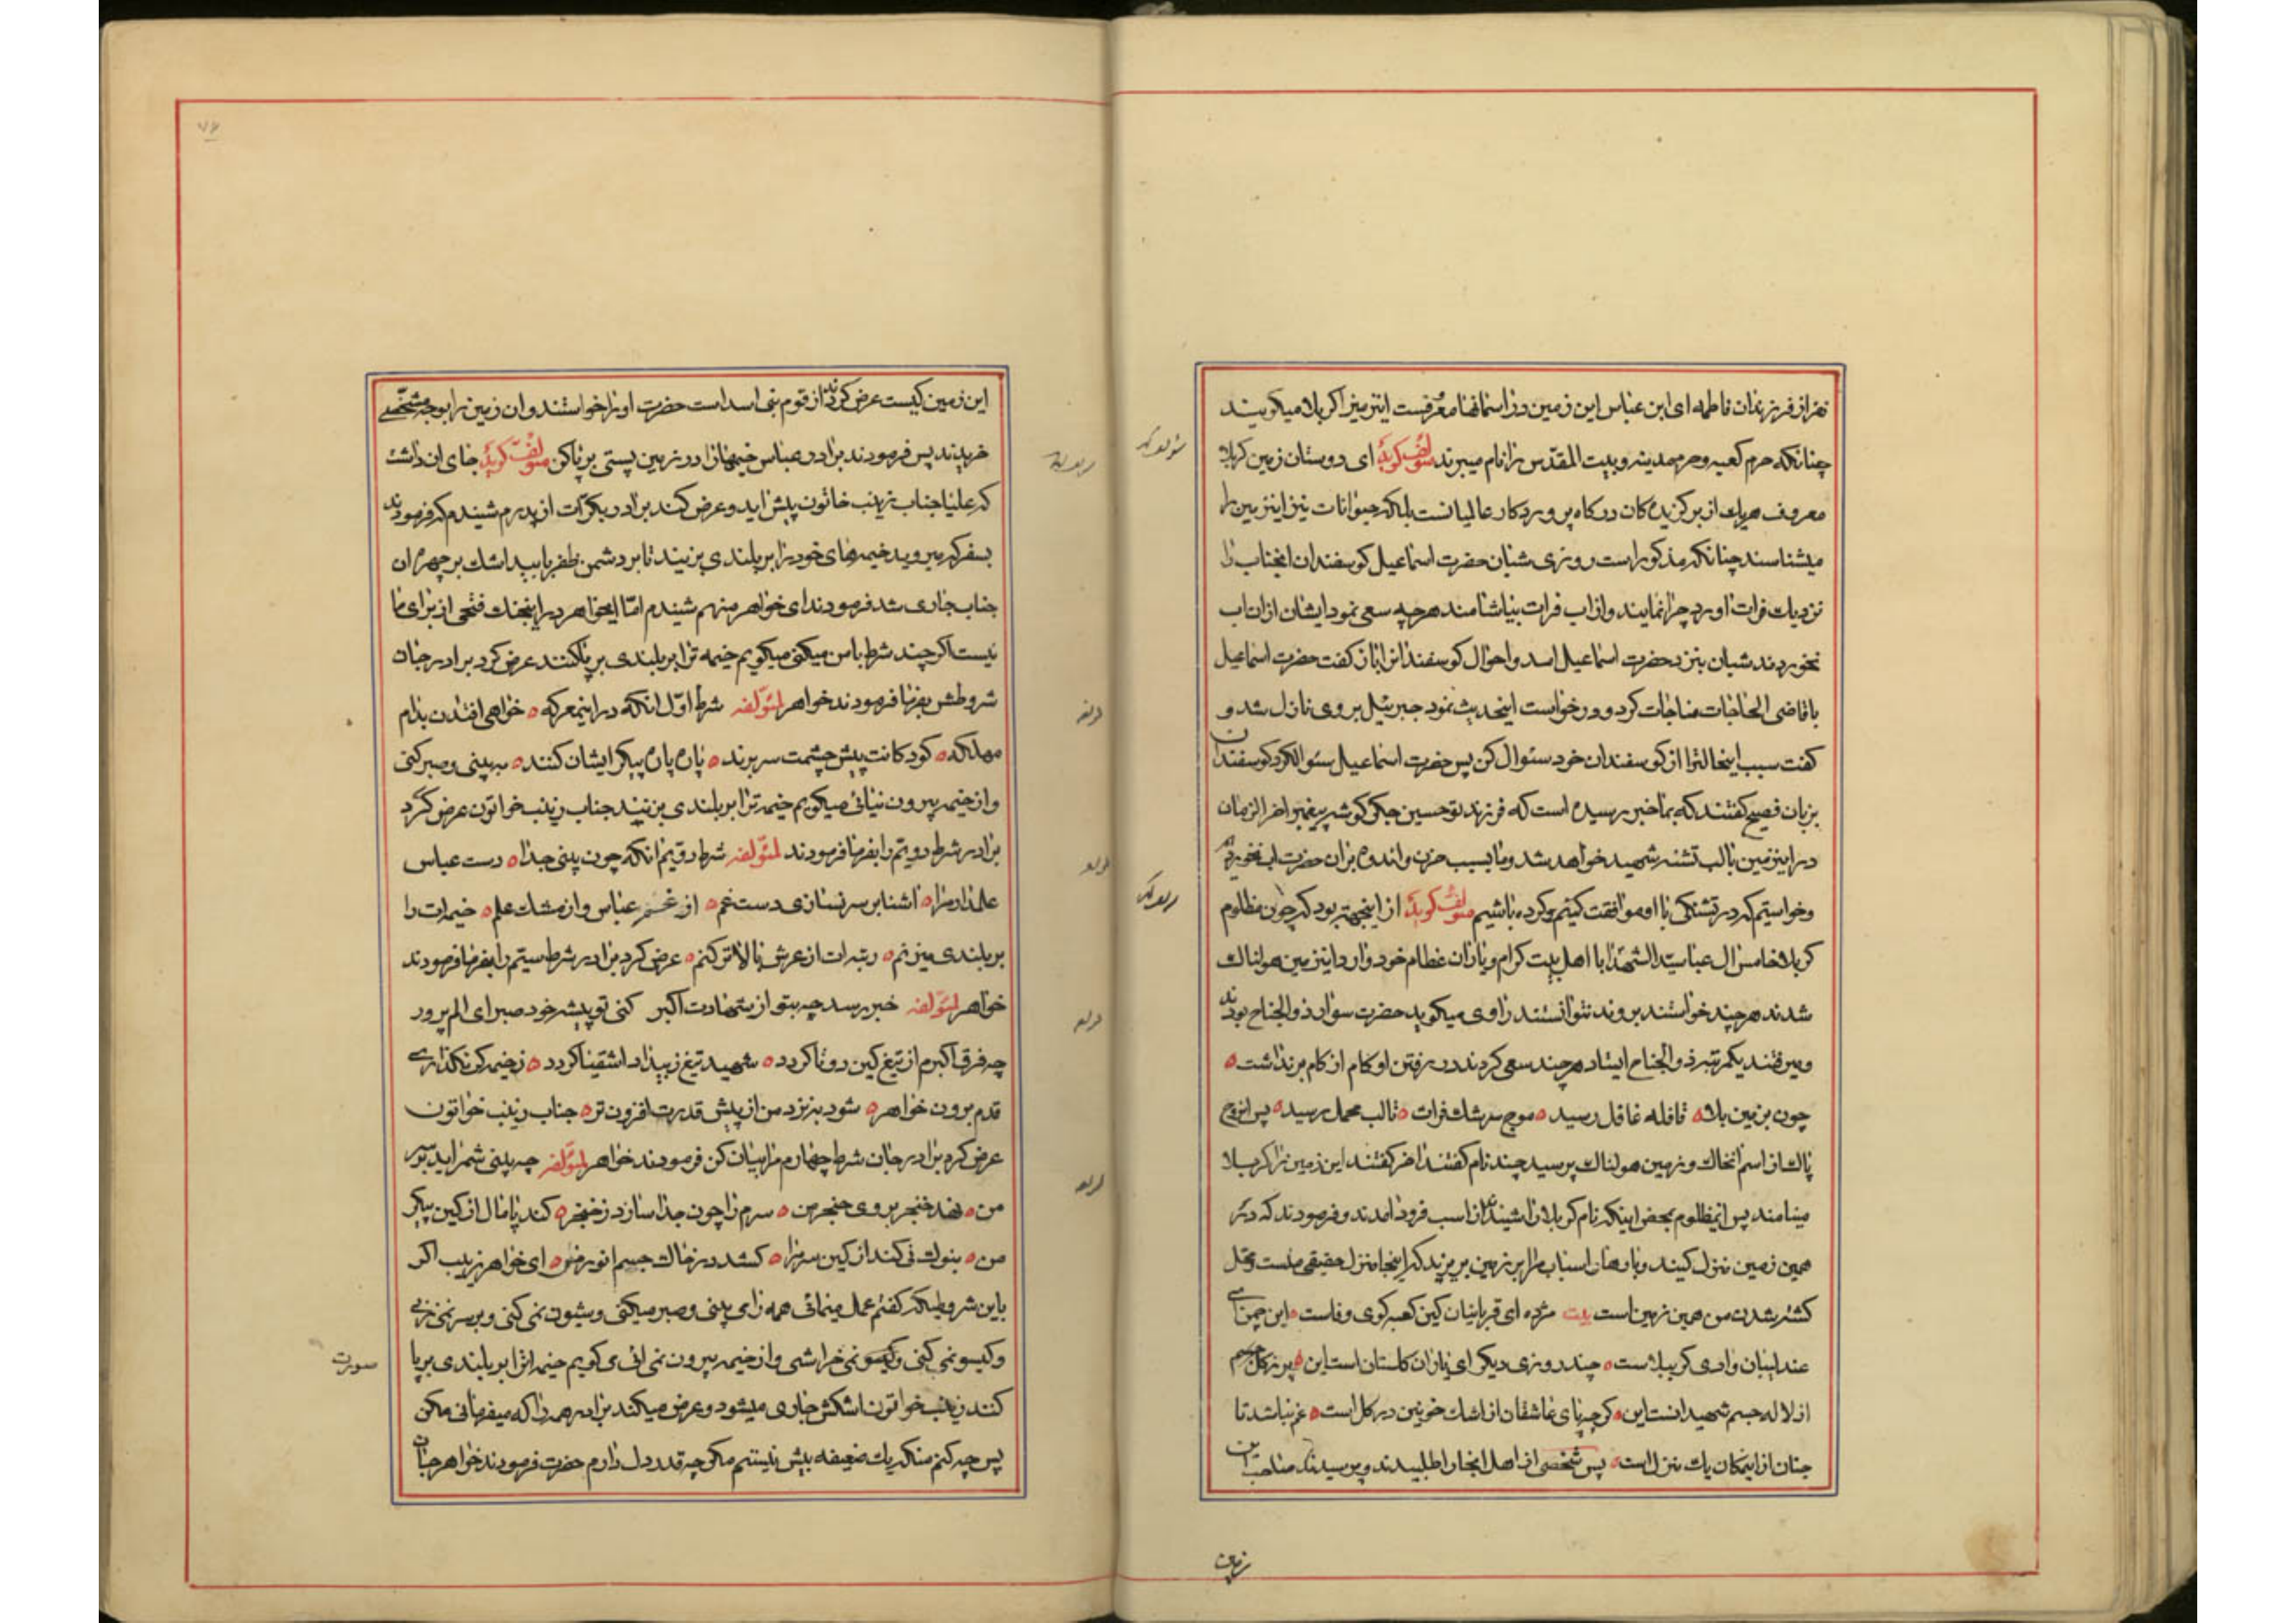 نفر از فرزندان فاطمه ای ابن عباس این زمین در آسمانها معرفست این زمین را کربلا میگویند
چنانکه حرم کعبه و حرم مدینه و بیت المقدّس را نام میبرند مؤلف گوید ای دوستان زمین کربلا
معروف هریك از برگزیده کان درگاه پروردگار عالمیانست بلکه حیوانات نیز این زمین را
میشناسند چنانکه مذکور است روزی شبان حضرت اسماعیل گوسفندان انجناب را
نزدیك فرات اورد چرا نمایند و از اب فرات بیاشامند هرچه سعی نمود ایشان از ان اب
نخوردند شبان بنزد حضرت اسماعیل امد و احوال گوسفندان را باز گفت حضرت اسماعیل
با قاضی الحاجات مناجات کرد و درخواست اینحدیث نمود جبرئیل بر وی نازل شد و
گفت سبب اینحالترا از گوسفندان خود سئوال کن پس حضرت اسماعیل سئوال کرد گوسفندان
بزبان فصیح گفتند که بما خبر رسیده است که فرزند تو حسین جگر گوشه پیغمبر اخر الزمان
در این زمین با لب تشنه شهید خواهد شد و ما بسبب حزن و اندوه بر ان حضرت اب نخوردیم
و خواستیم که در تشنگی با او موافقت کنیم و کرده باشیم مؤلف گوید از اینجهة بود که چون مظلوم
کربلا خامس ال عبا سیّد الشهدا با اهل بیت کرام و یاران عظام خود وارد این زمین هولناك
شدند هرچند خواستند بروند نتوانستند راوی میگوید حضرت سوار ذوالجناح بودند
و میرفتند یکمرتبه ذوالجناح ایستاد هرچند سعی کردند در رفتن او گام از گام بر نداشت
چون بزمین بلا قافله غافل رسید موج سرشك فرات تا لب محمل رسید پس انروح
پاك از اسم انخاك و زمین هولناك پرسید چند نام گفتند اخر گفتند این زمین را کربلا
مینامند پس انمظلوم بمحض اینکه نام کربلا را شنید از اسب فرود امدند و فرمودند که در
همین زمین منزل کنید و بارهای اسباب مرا بر زمین بریزند که اینجا منزل حقیقی ماست و محل
کشته شدن من همین زمین است بیت مژده ای قربانیان کین کعبه کوی وفاست این چمن ای
عندلیبان وادی کربلاست چند روزی دیگر ای یاران گلستان است این پر ز گل
از لاله جسم شهیدانست این گرچه پای عاشقان از اشك خونین در گل است غم نباشد تا
جنان از اینمکان یك منزل است پس شخصی از اهل انجا را طلبیدند و پرسیدند صاحب این
زمین
این زمین کیست عرض کردند از قوم بنی اسد است حضرت او را خواستند و ان زمین را بوجه مشخّصے
خریدند پس فرمودند برادر عباس خیمها را در زمین پستی بر پا کن مؤلف گوید جای ان داشت
که علیا جناب زینب خاتون پیش اید و عرض کند برادر دیگر ات از پدرم شنیدم که فرمودند
بسفر که میروید خیمهای خود را بر بلندی بزنید تا بر دشمن ظفر یابید اشك بر چهره ان
جناب جاری شد فرمودند ای خواهر منهم شنیدم امّا ایخواهر در اینجنك فتحی از برای ما
نیست اگر چند شرط با من میکنی میگویم خیمه ترا بر بلندی بر پا کنند عرض کرد برادر جان
شروطش بفرما فرمودند خواهر لمؤلّفه شرط اوّل انکه در اینمعرکه خواهی افتدن بدام
مهلکه کودکانت پیش چشمت سر برند پاره پاره پیکر ایشان کنند ببینی و صبر کنی
و از خیمه بیرون نیائی میگویم خیمه ترا بر بلندی بزنند جناب زینب خواتون عرض کرد
برادر شرط دویّم را بفرما فرمودند لمؤلّفه شرط دویّم انکه چون بینی جدا دست عباس
علمدار مرا اشنا بر سر نسازی دست غم از غم عباس و از مشك علم خیمه ات را
بر بلندی میزنم رتبه ات از عرش بالاتر کنم عرض کرد برادر شرط سیّم را بفرما فرمودند
خواهر لمؤلّفه خبر رسد چه بتو از شهادت اکبر کنی تو پیشه خود صبر ای الم پرور
چه فرق اکبرم از تیغ کین دو تا گردد شهید تیغ ز بیداد اشقیا گردد ز خیمه گر نگذارے
قدم برون خواهر شود بنزد من از پیش قدرت افزون تر جناب زینب خواتون
عرض کرد برادر جان شرط چهارم را بیان کن فرمودند خواهر لمؤلّفه چه بینی شمر اید بر سر
من نهد خنجر بروی حنجر من سرم را چون جدا سازد ز خنجر کند پامال از کین پیکر
من بنوك نی کند از کین سرم را کشد در خاك جسم انور من ای خواهر زینب اگر
باین شروطیکه گفتم عمل مینمائی همه را می بینی و صبر میکنی و شیون نمی کنی و بر سر نمی زنی
و گیسو نمی کنی و گیسو نمی خراشی و از خیمه بیرون نمی ائی می گویم خیمه ترا بر بلندی بر پا
صورت
کنند زینب خواتون اشکش جاری میشود و عرض میکند برادر همه را که میفرمائی مکن
پس چه کنم من که یك ضعیفه بیش نیستم مگو چه قدر دل دارم حضرت فرمودند خواهر جان